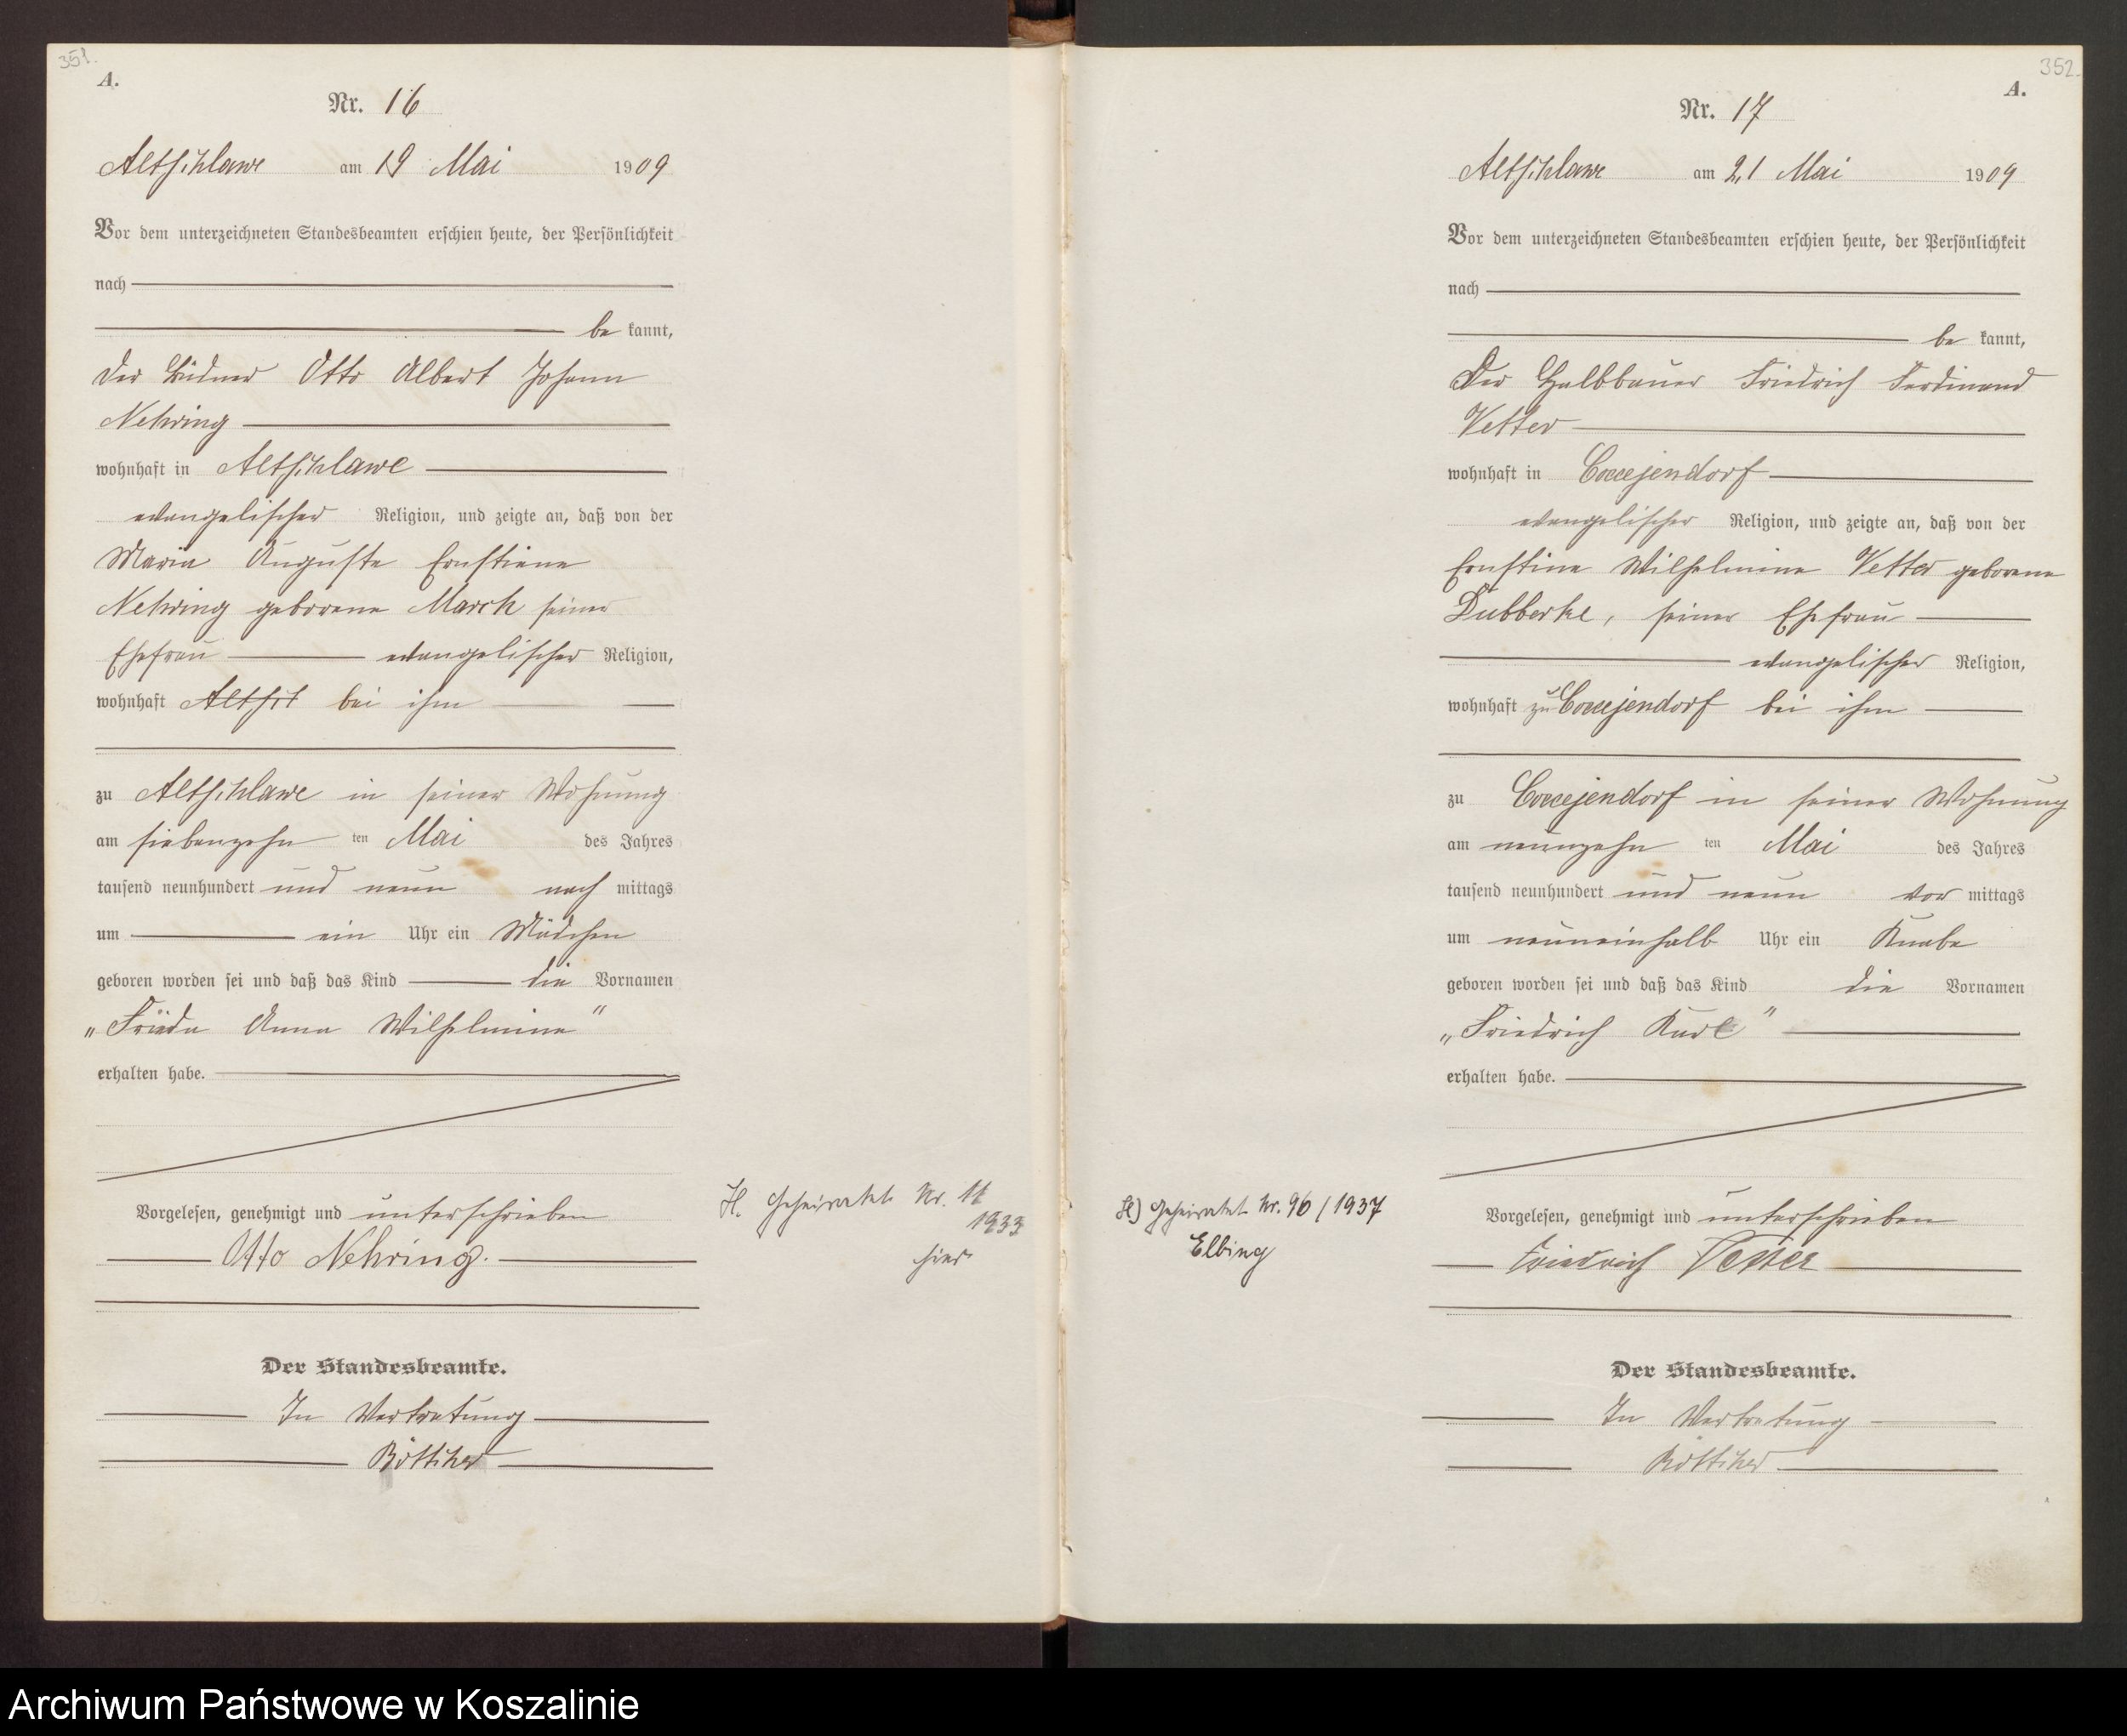 351.
A.
Nr. 16
Altschlawe am 19 Mai 1909
Vor dem unterzeichneten Standesbeamten erschien heute, der Persönlichkeit
nach
be kannt,
der Büdner Otto Albert Johann
Nehring
wohnhaft in Altschlawe
evangelischer Religion, und zeigte an, daß von der
Maria Auguste Ernstiene
Nehring geborene March seiner
Ehefrau evangelischer Religion,
wohnhaft Altsch bei ihm
zu Altschlawe in seiner Wohnung
am siebenzehn ten Mai des Jahres
tausend neunhundert und neun nach mittags
um ein Uhr ein Mädchen
geboren worden sei und daß das Kind die Vornamen
„Frieda Anna Wilhelmine“
erhalten habe.
Vorgelesen, genehmigt und unterschrieben
Otto Nehring.
Der Standesbeamte.
In Vertretung
Böttcher
H. Geheiratet Nr. 11
1933
hier
352.
A.
Nr. 17
Altschlawe am 21 Mai 1909
Vor dem unterzeichneten Standesbeamten erschien heute, der Persönlichkeit
nach
be kannt,
Der Halbbauer Friedrich Ferdinand
Vetter
wohnhaft in Coccejendorf
evangelischer Religion, und zeigte an, daß von der
Ernstine Wilhelmine Vetter geborene
Dubberke, seiner Ehefrau
evangelischer Religion,
wohnhaft zu Coccejendorf bei ihm
zu Coccejendorf in seiner Wohnung
am neunzehn ten Mai des Jahres
tausend neunhundert und neun vor mittags
um neuneinhalb Uhr ein Knabe
geboren worden sei und daß das Kind die Vornamen
„Friedrich Karl“
erhalten habe.
Vorgelesen, genehmigt und unterschrieben
Friedrich Vetter
Der Standesbeamte.
In Vertretung
Böttcher
H) Geheiratet Nr. 96/1937
Elbing
Archiwum Państwowe w Koszalinie